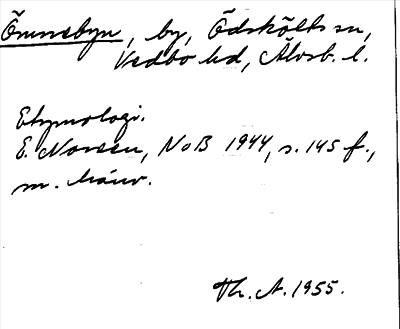 Õnnebyn, by, Ödskölts sn,
Vedbo hd, Älvsb. l.
Etymologi.
E. Noreen, NoB 1944, s. 145 f.,
m. hänv.
Th. A. 1955.